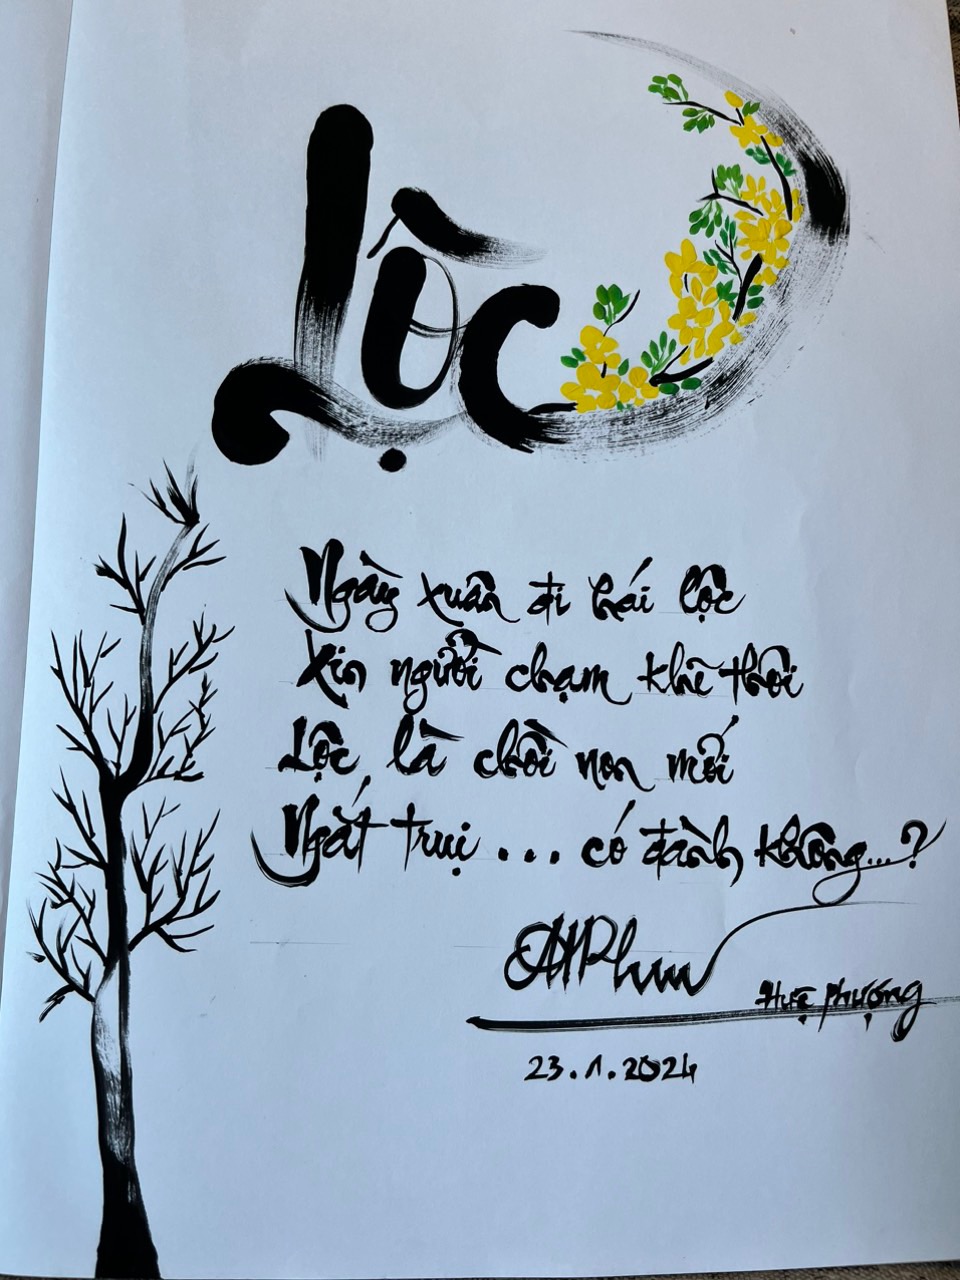 Lộc
Ngày xuân đi hái lộc
Xin người chạm khẽ thôi
Lộc là chồi non mới
Ngắt trụi... có đành không...?
Huệ Phượng
23.1.2024